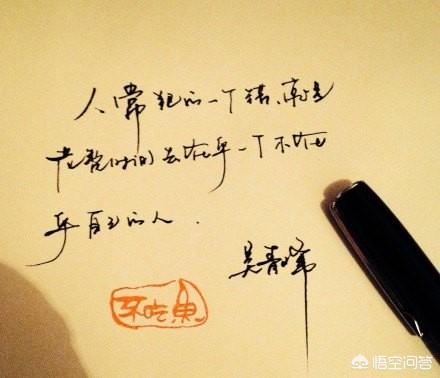 人常犯的一个错,就是
花整时间去在乎一个不在
乎自己的人.
吴青峰
不吃鱼
悟空问答